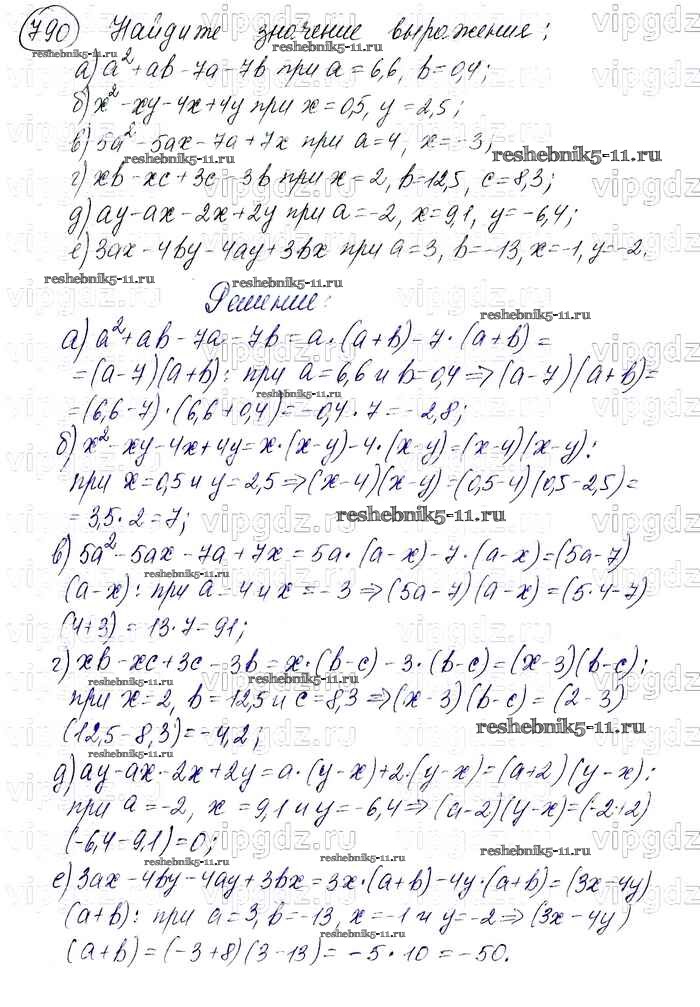 790 Найдите значение выражения:
а) a² + ab - 7a - 7b при a = 6,6, b = 0,4;
б) x² - xy - 4x + 4y при x = 0,5, y = 2,5;
в) 5a² - 5ax - 7a + 7x при a = 4, x = -3;
г) xb - xc + 3c - 3b при x = 2, b = 12,5, c = 8,3;
д) ay - ax - 2x + 2y при a = -2, x = 9,1, y = -6,4;
е) 3ax - 4by - 4ay + 3bx при a = 3, b = -13, x = -1, y = -2.
Решение:
а) a² + ab - 7a - 7b = a·(a+b) - 7·(a+b) =
= (a-7)(a+b): при a = 6,6 и b = 0,4 => (a-7)(a+b) =
= (6,6-7)·(6,6+0,4) = -0,4·7 = -2,8;
б) x² - xy - 4x + 4y = x·(x-y) - 4·(x-y) = (x-4)(x-y):
при x = 0,5 и y = 2,5 => (x-4)(x-y) = (0,5-4)(0,5-2,5) =
= 3,5·2 = 7;
в) 5a² - 5ax - 7a + 7x = 5a·(a-x) - 7·(a-x) = (5a-7)
(a-x): при a = 4 и x = -3 => (5a-7)(a-x) = (5·4-7)
(4+3) = 13·7 = 91;
г) xb - xc + 3c - 3b = x·(b-c) - 3·(b-c) = (x-3)(b-c):
при x = 2, b = 12,5 и c = 8,3 => (x-3)(b-c) = (2-3)
(12,5-8,3) = -4,2;
д) ay - ax - 2x + 2y = a·(y-x) + 2·(y-x) = (a+2)(y-x):
при a = -2, x = 9,1 и y = -6,4 => (a-2)(y-x) = (-2+2)
(-6,4-9,1) = 0;
е) 3ax - 4by - 4ay + 3bx = 3x·(a+b) - 4y·(a+b) = (3x-4y)
(a+b): при a = 3, b = -13, x = -1 и y = -2 => (3x-4y)
(a+b) = (-3+8)(3-13) = -5·10 = -50.
reshebnik5-11.ru
vipgdz.ru